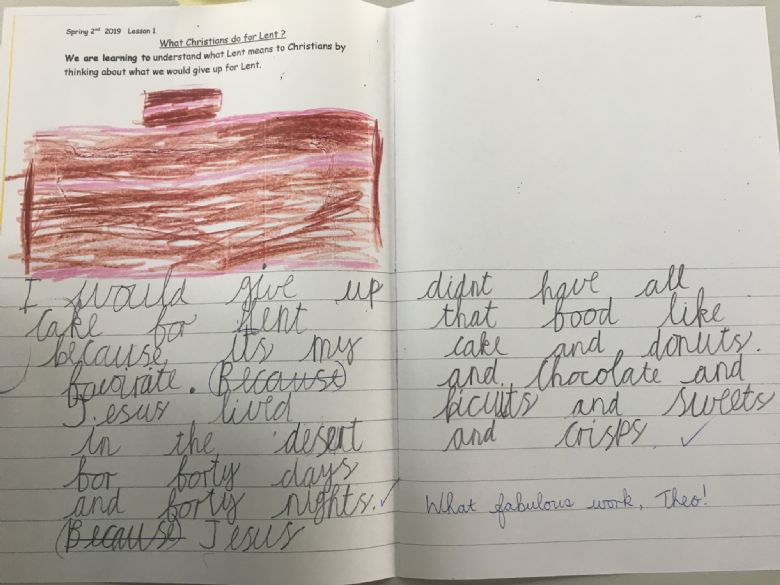 Spring 2nd 2019 Lesson 1
What Christians do for Lent?
We are learning to understand what Lent means to Christians by
thinking about what we would give up for Lent.
I would give up
cake for Lent
because its my
favourate. (Because)
Jesus lived
in the desert
for forty days
and forty nights.
(Because) Jesus
didnt have all
that food like
cake and donuts.
and. Chocolate and
bicuits and sweets
and crisps.
What fabulous work, Theo!